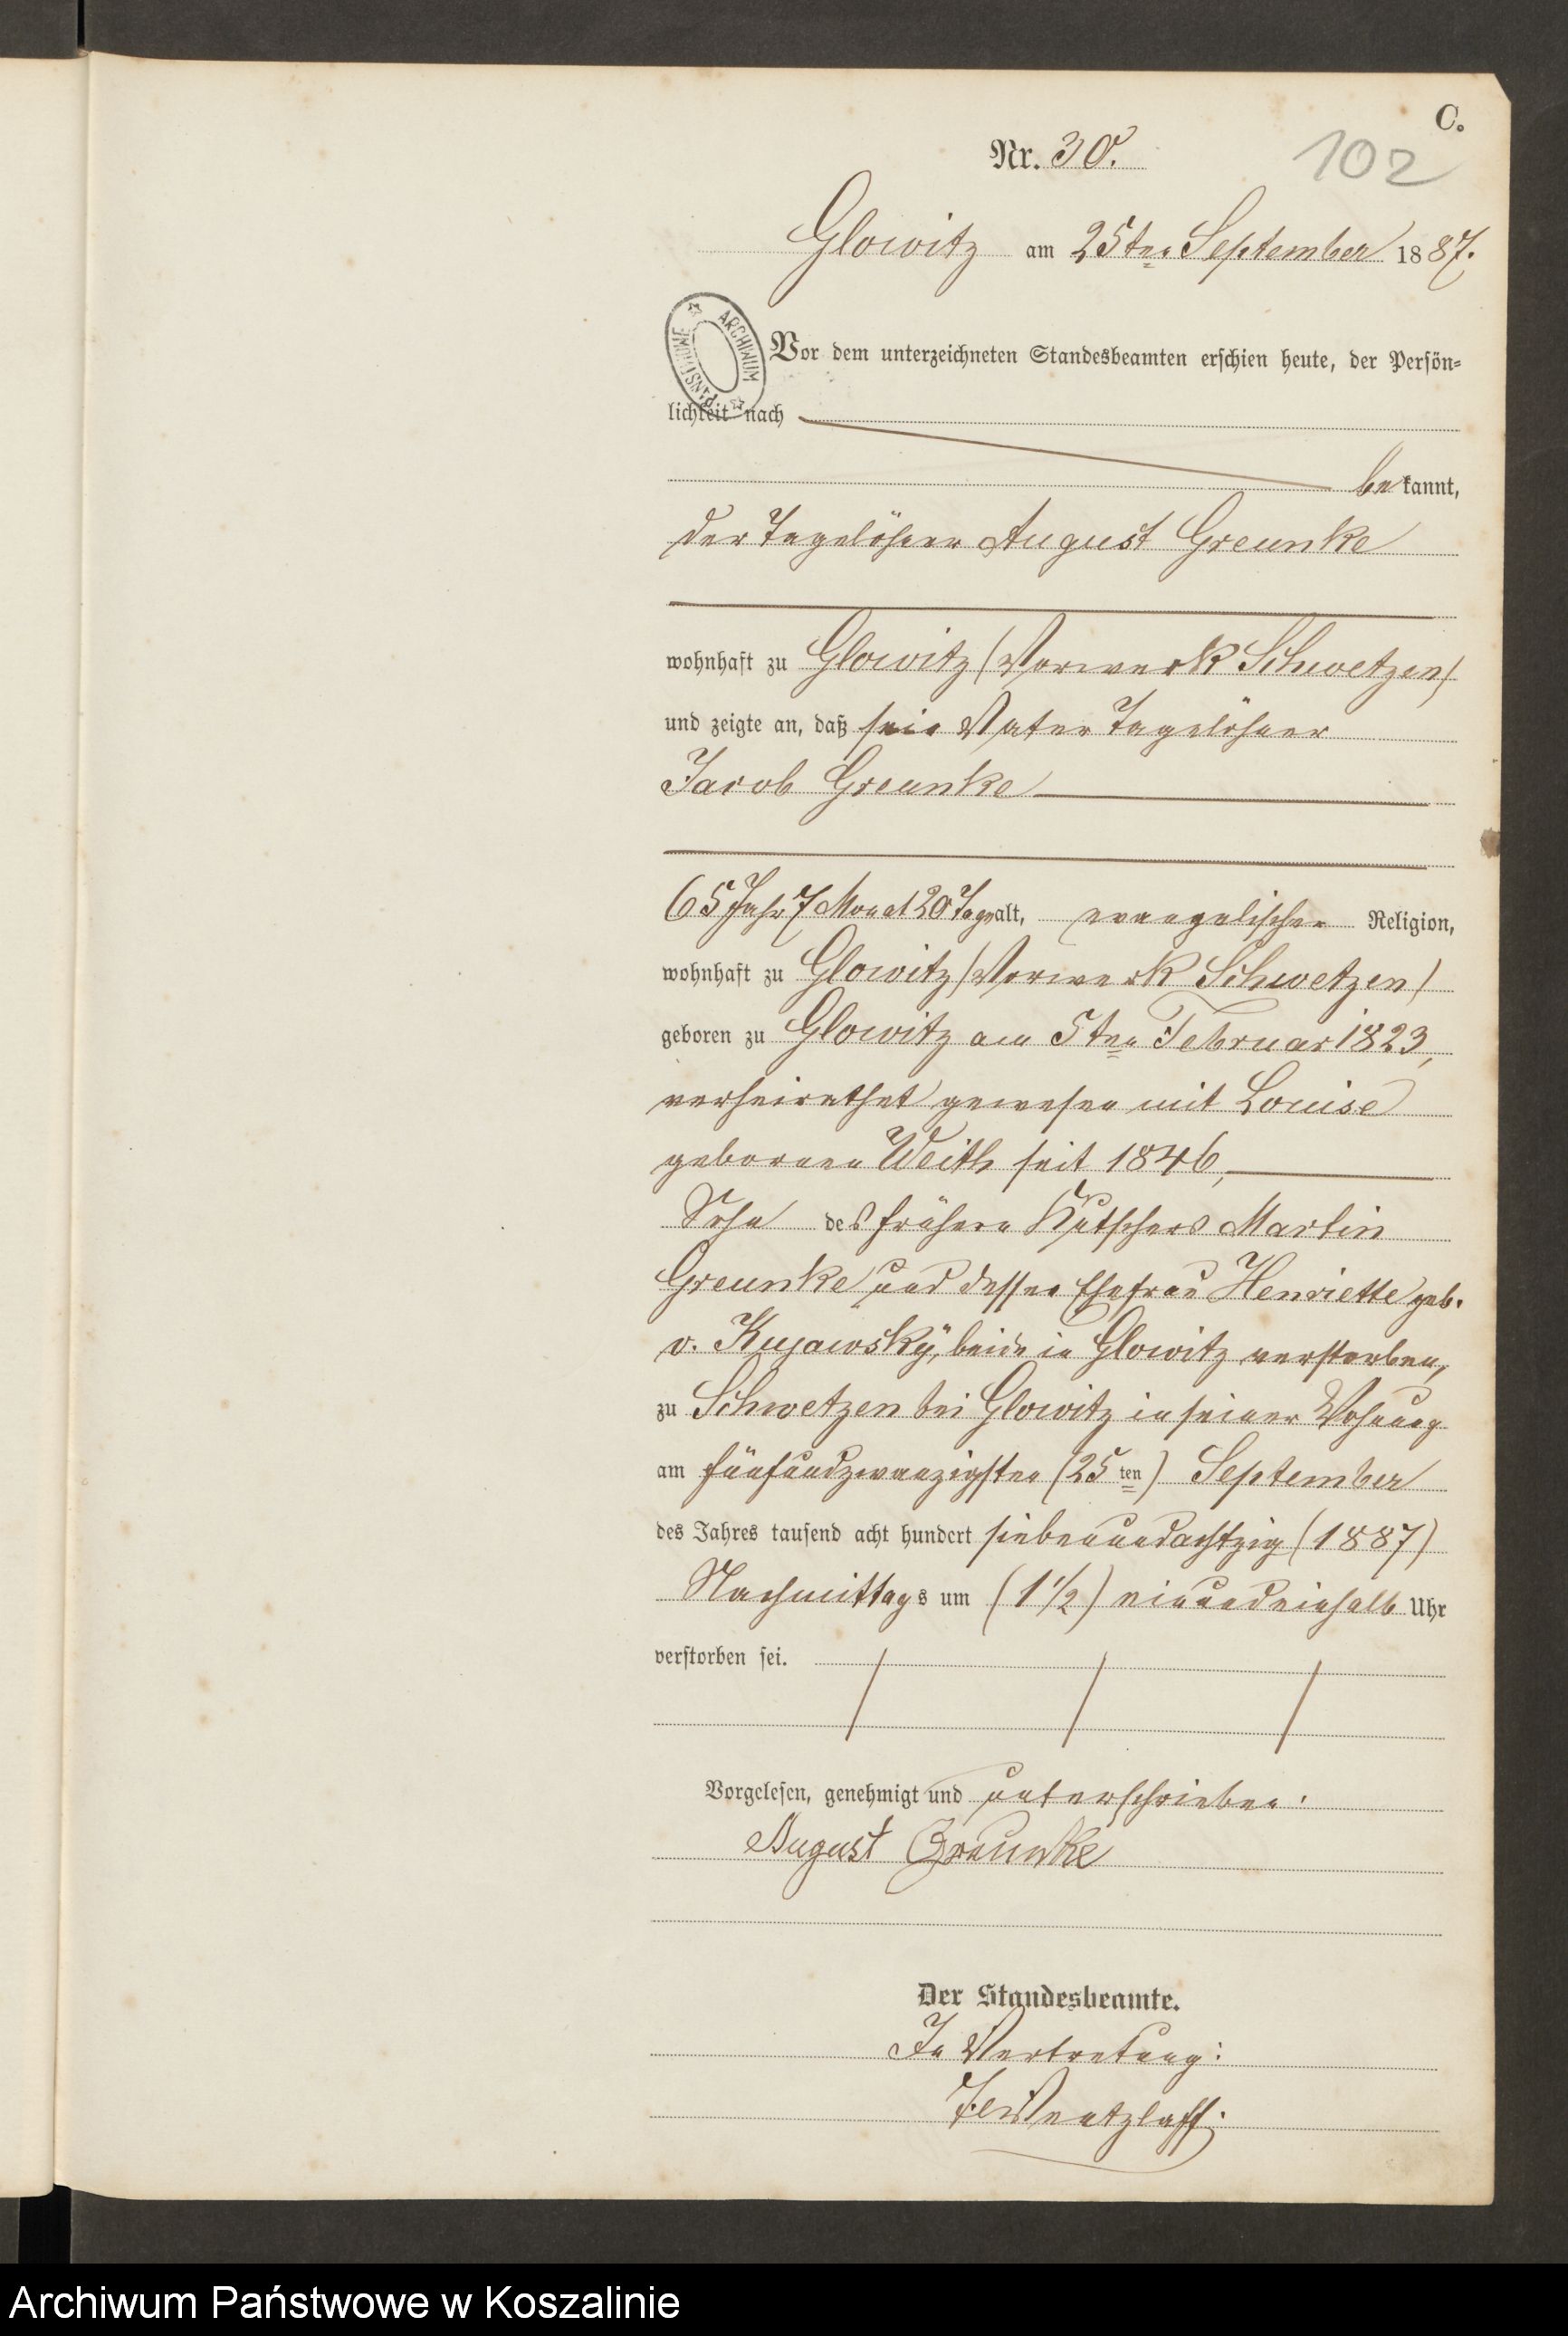 C.
Nr. 30.
102
Glowitz am 25ten September 1887.
ARCHIWUM PAŃSTWOWE
Vor dem unterzeichneten Standesbeamten erschien heute, der Persön=
lichkeit nach
bekannt,
der Tagelöhner August Greunke
wohnhaft zu Glowitz (Vorwerk Schwetzen)
und zeigte an, daß sein Vater Tagelöhner
Jacob Greunke
65 Jahr 7 Monat 20 Tage alt, evangelischer Religion,
wohnhaft zu Glowitz (Vorwerk Schwetzen)
geboren zu Glowitz am 5ten Februar 1823,
verheirathet gewesen mit Louise
geborenen Weith seit 1846,
Sohn des frühern Kutschers Martin
Greunke und dessen Ehefrau Henriette geb.
v. Kujawsky, beide in Glowitz verstorben,
zu Schwetzen bei Glowitz in seiner Wohnung
am fünfundzwanzigsten (25ten) September
des Jahres tausend acht hundert siebenundachtzig (1887)
Nachmittags um (1 1/2) einundeinhalb Uhr
verstorben sei.
Vorgelesen, genehmigt und unterschrieben.
August Greunke
Der Standesbeamte.
In Vertretung:
Wentzlaff.
Archiwum Państwowe w Koszalinie